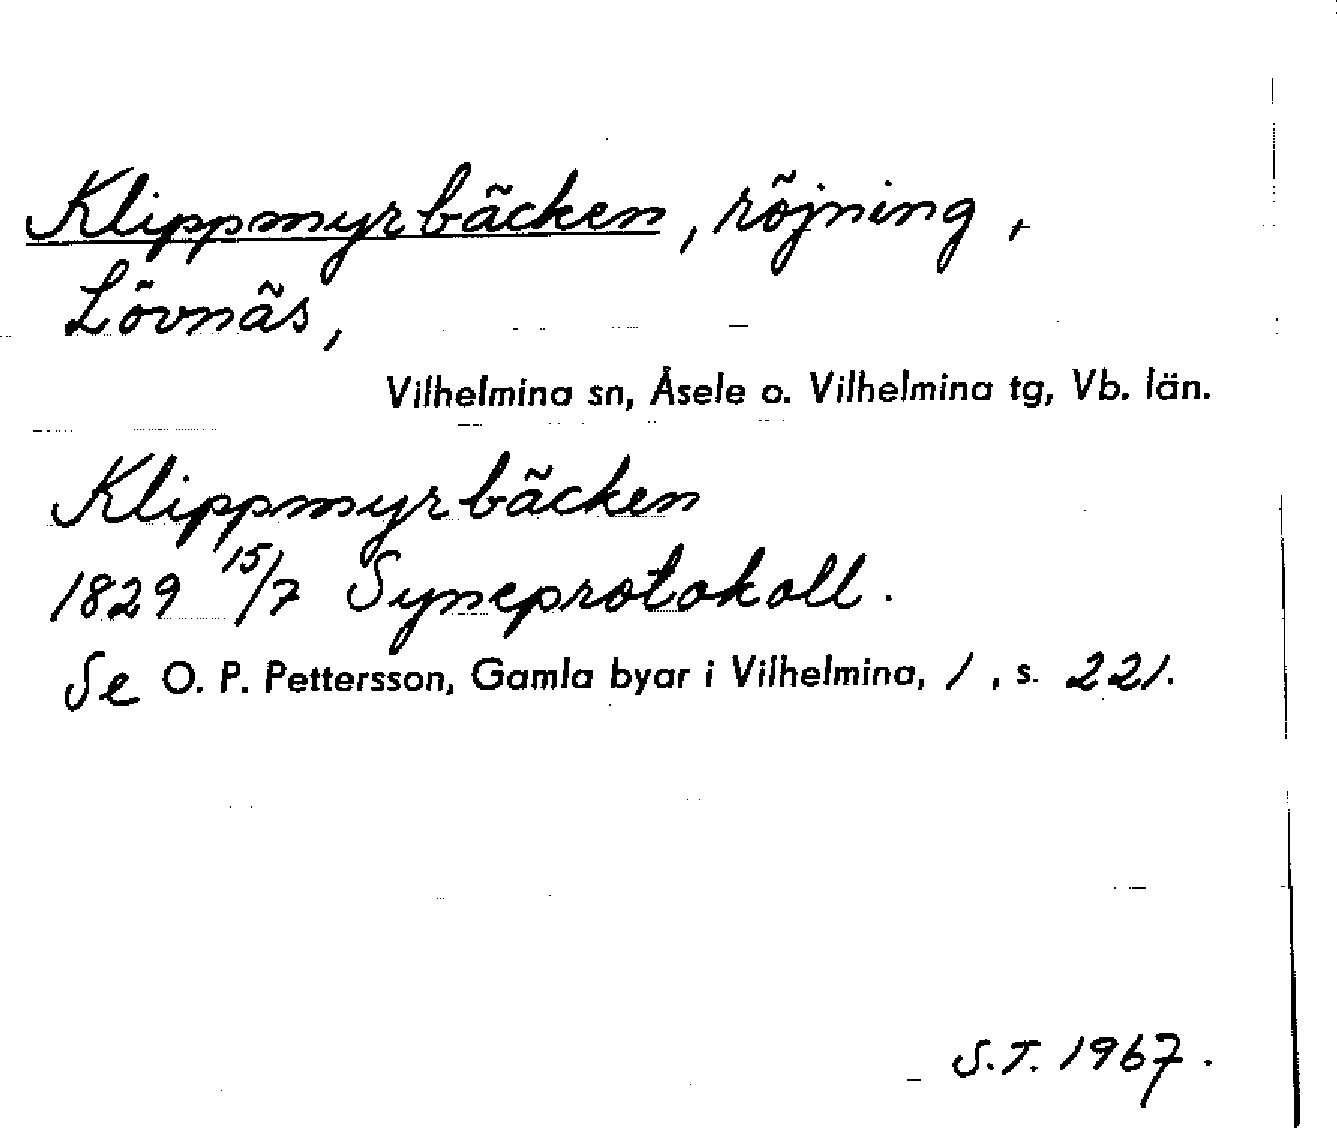 Klippmyrbäcken, röjning,
Lövnäs,
Vilhelmina sn, Åsele o. Vilhelmina tg, Vb. län.
Klippmyrbäcken
1829 15/7 Syneprotokoll.
Se O. P. Pettersson, Gamla byar i Vilhelmina, 1, s. 221.
S.T. 1967.